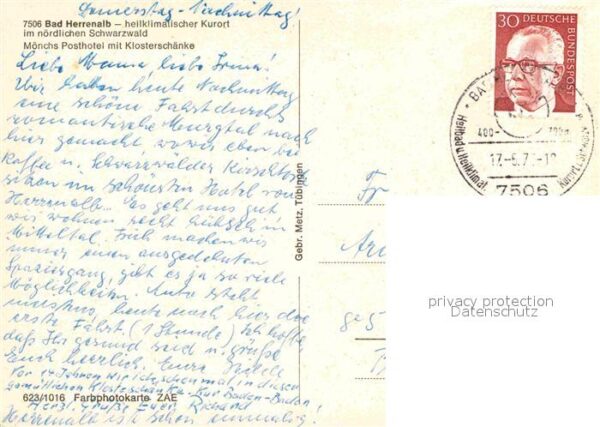 Donnerstag - Nachmittag!
7506 Bad Herrenalb – heilklimatischer Kurort
im nördlichen Schwarzwald
Mönchs Posthotel mit Klosterschänke
Liebe Mama liebe Irma!
Wir haben heute Nachmittag
eine schöne Fahrt durchs
romantische Murgtal nach
hier gemacht, wo wir eben bei
Kaffee u. Schwarzwälder Kirschtorte
sitzen im schönsten Hotel von
Herrenalb. Es geht uns gut
wir wohnen recht hübsch in
Mitteltal. Früh machen wir
immer einen ausgedehnten
Spaziergang, gibt es ja so viele
Möglichkeiten. Auto steht
meistens, heute nach hier die
erste Fahrt (1 Stunde) Ich hoffe
daß Ihr gesund seid u. grüße
Euch herzlich. Eure
Vor 14 Jahren in diesen
gemütlichen Klosterschänke Baden-Baden!
Herzl. Grüße Euer Richard
623/1016 Farbphotokarte ZAE
Herrenalb ist schön einmalig!
Gebr. Metz, Tübingen
30 DEUTSCHE
BUNDESPOST
BA
400-
Heilbad u Heilklimat
Kurort
7506
privacy protection
Datenschutz